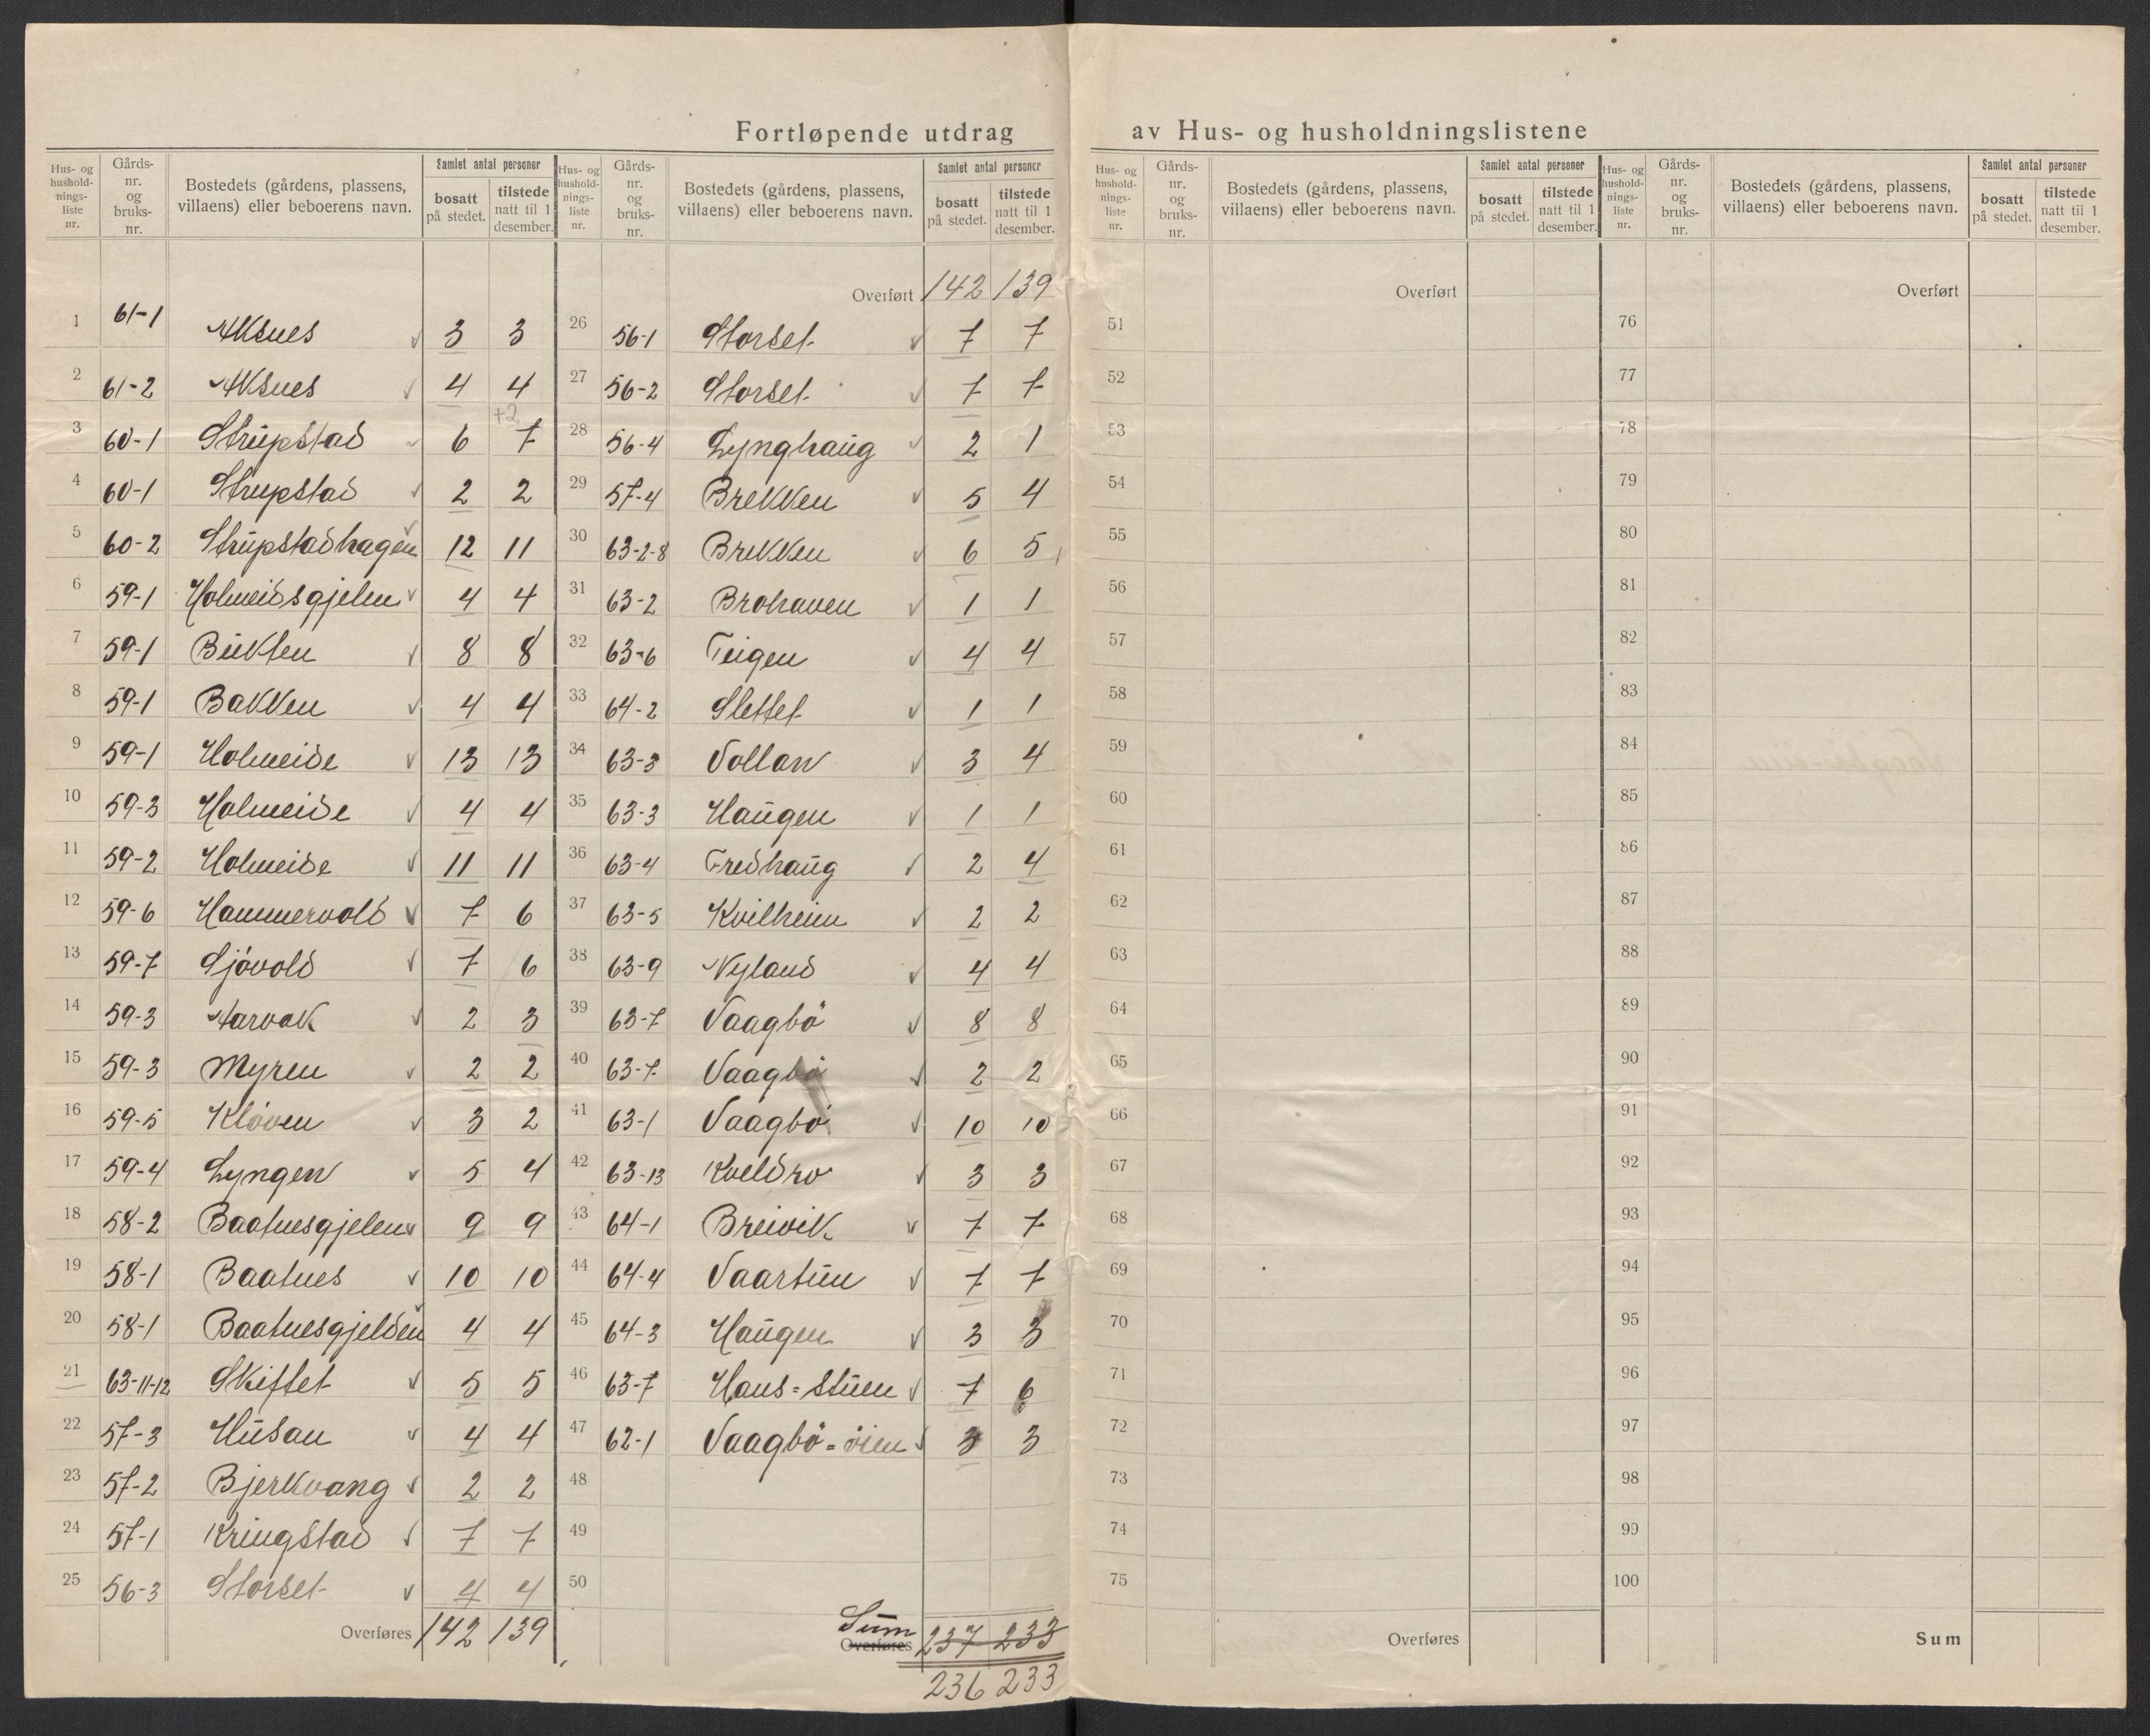 Fortløpende utdrag av Hus- og husholdningslistene
Hus- og hushold-nings-liste nr. | Gårds-nr. og bruks-nr. | Bostedets (gårdens, plassens, villaens) eller beboerens navn. | Samlet antal personer | bosatt på stedet. | tilstede natt til 1 desember.
1 61-1 Aksnes √ 3 3
2 61-2 Aksnes √ 4 4
+2
3 60-1 Strupstad √ 6 7
4 60-1 Strupstad √ 2 2
5 60-2 Strupstadhagen √ 12 11
6 59-1 Holmeidsgjelen √ 4 4
7 59-1 Bukten √ 8 8
8 59-1 Bakken √ 4 4
9 59-1 Holmeide √ 13 13
10 59-3 Holmeide √ 4 4
11 59-2 Holmeide √ 11 11
12 59-6 Hammervold √ 7 6
13 59-7 Sjövold √ 7 6
14 59-3 Aarvak √ 2 3
15 59-3 Myren √ 2 2
16 59-5 Klöven √ 3 2
17 59-4 Lyngen √ 5 4
18 58-2 Baatnesgjelen √ 9 9
19 58-1 Baatnes √ 10 10
20 58-1 Baatnesgjelden √ 4 4
21 63-11-12 Skiftet √ 5 5
22 57-3 Husan √ 4 4
23 57-2 Bjerkvang √ 2 2
24 57-1 Kringstad √ 7 7
25 56-3 Storset √ 4 4
Overføres 142 139
Hus- og hushold-nings-liste nr. | Gårds-nr. og bruks-nr. | Bostedets (gårdens, plassens, villaens) eller beboerens navn. | Samlet antal personer | bosatt på stedet. | tilstede natt til 1 desember.
Overført 142 139
26 56-1 Storset √ 7 7
27 56-2 Storset √ 7 7
28 56-4 Lynghaug √ 2 1
29 57-4 Brekken √ 5 4
30 63-2-8 Brekken √ 6 5
31 63-2 Brohaven √ 1 1
32 63-6 Teigen √ 4 4
33 64-2 Slettet √ 1 1
34 63-3 Vollan √ 3 4
35 63-3 Haugen √ 1 1
36 63-4 Fredhaug √ 2 4
37 63-5 Kvilheim √ 2 2
38 63-9 Nyland √ 4 4
39 63-7 Vaagbö √ 8 8
40 63-7 Vaagbö √ 2 2
41 63-1 Vaagbö √ 10 10
42 63-13 Kveldro √ 3 3
43 64-1 Breivik √ 7 7
44 64-4 Vaartun √ 7 7
45 64-3 Haugen √ 3 3
46 63-7 Hans=stuen √ 7 6
47 62-1 Vaagbö=öien √ 3 3
48
49
50
Sum Overføres 237 233
236 233
Hus- og hushold-nings-liste nr. | Gårds-nr. og bruks-nr. | Bostedets (gårdens, plassens, villaens) eller beboerens navn. | Samlet antal personer | bosatt på stedet. | tilstede natt til 1 desember.
Overført
51
52
53
54
55
56
57
58
59
60
61
62
63
64
65
66
67
68
69
70
71
72
73
74
75
Overføres
Hus- og hushold-nings-liste nr. | Gårds-nr. og bruks-nr. | Bostedets (gårdens, plassens, villaens) eller beboerens navn. | Samlet antal personer | bosatt på stedet. | tilstede natt til 1 desember.
Overført
76
77
78
79
80
81
82
83
84
85
86
87
88
89
90
91
92
93
94
95
96
97
98
99
100
Sum